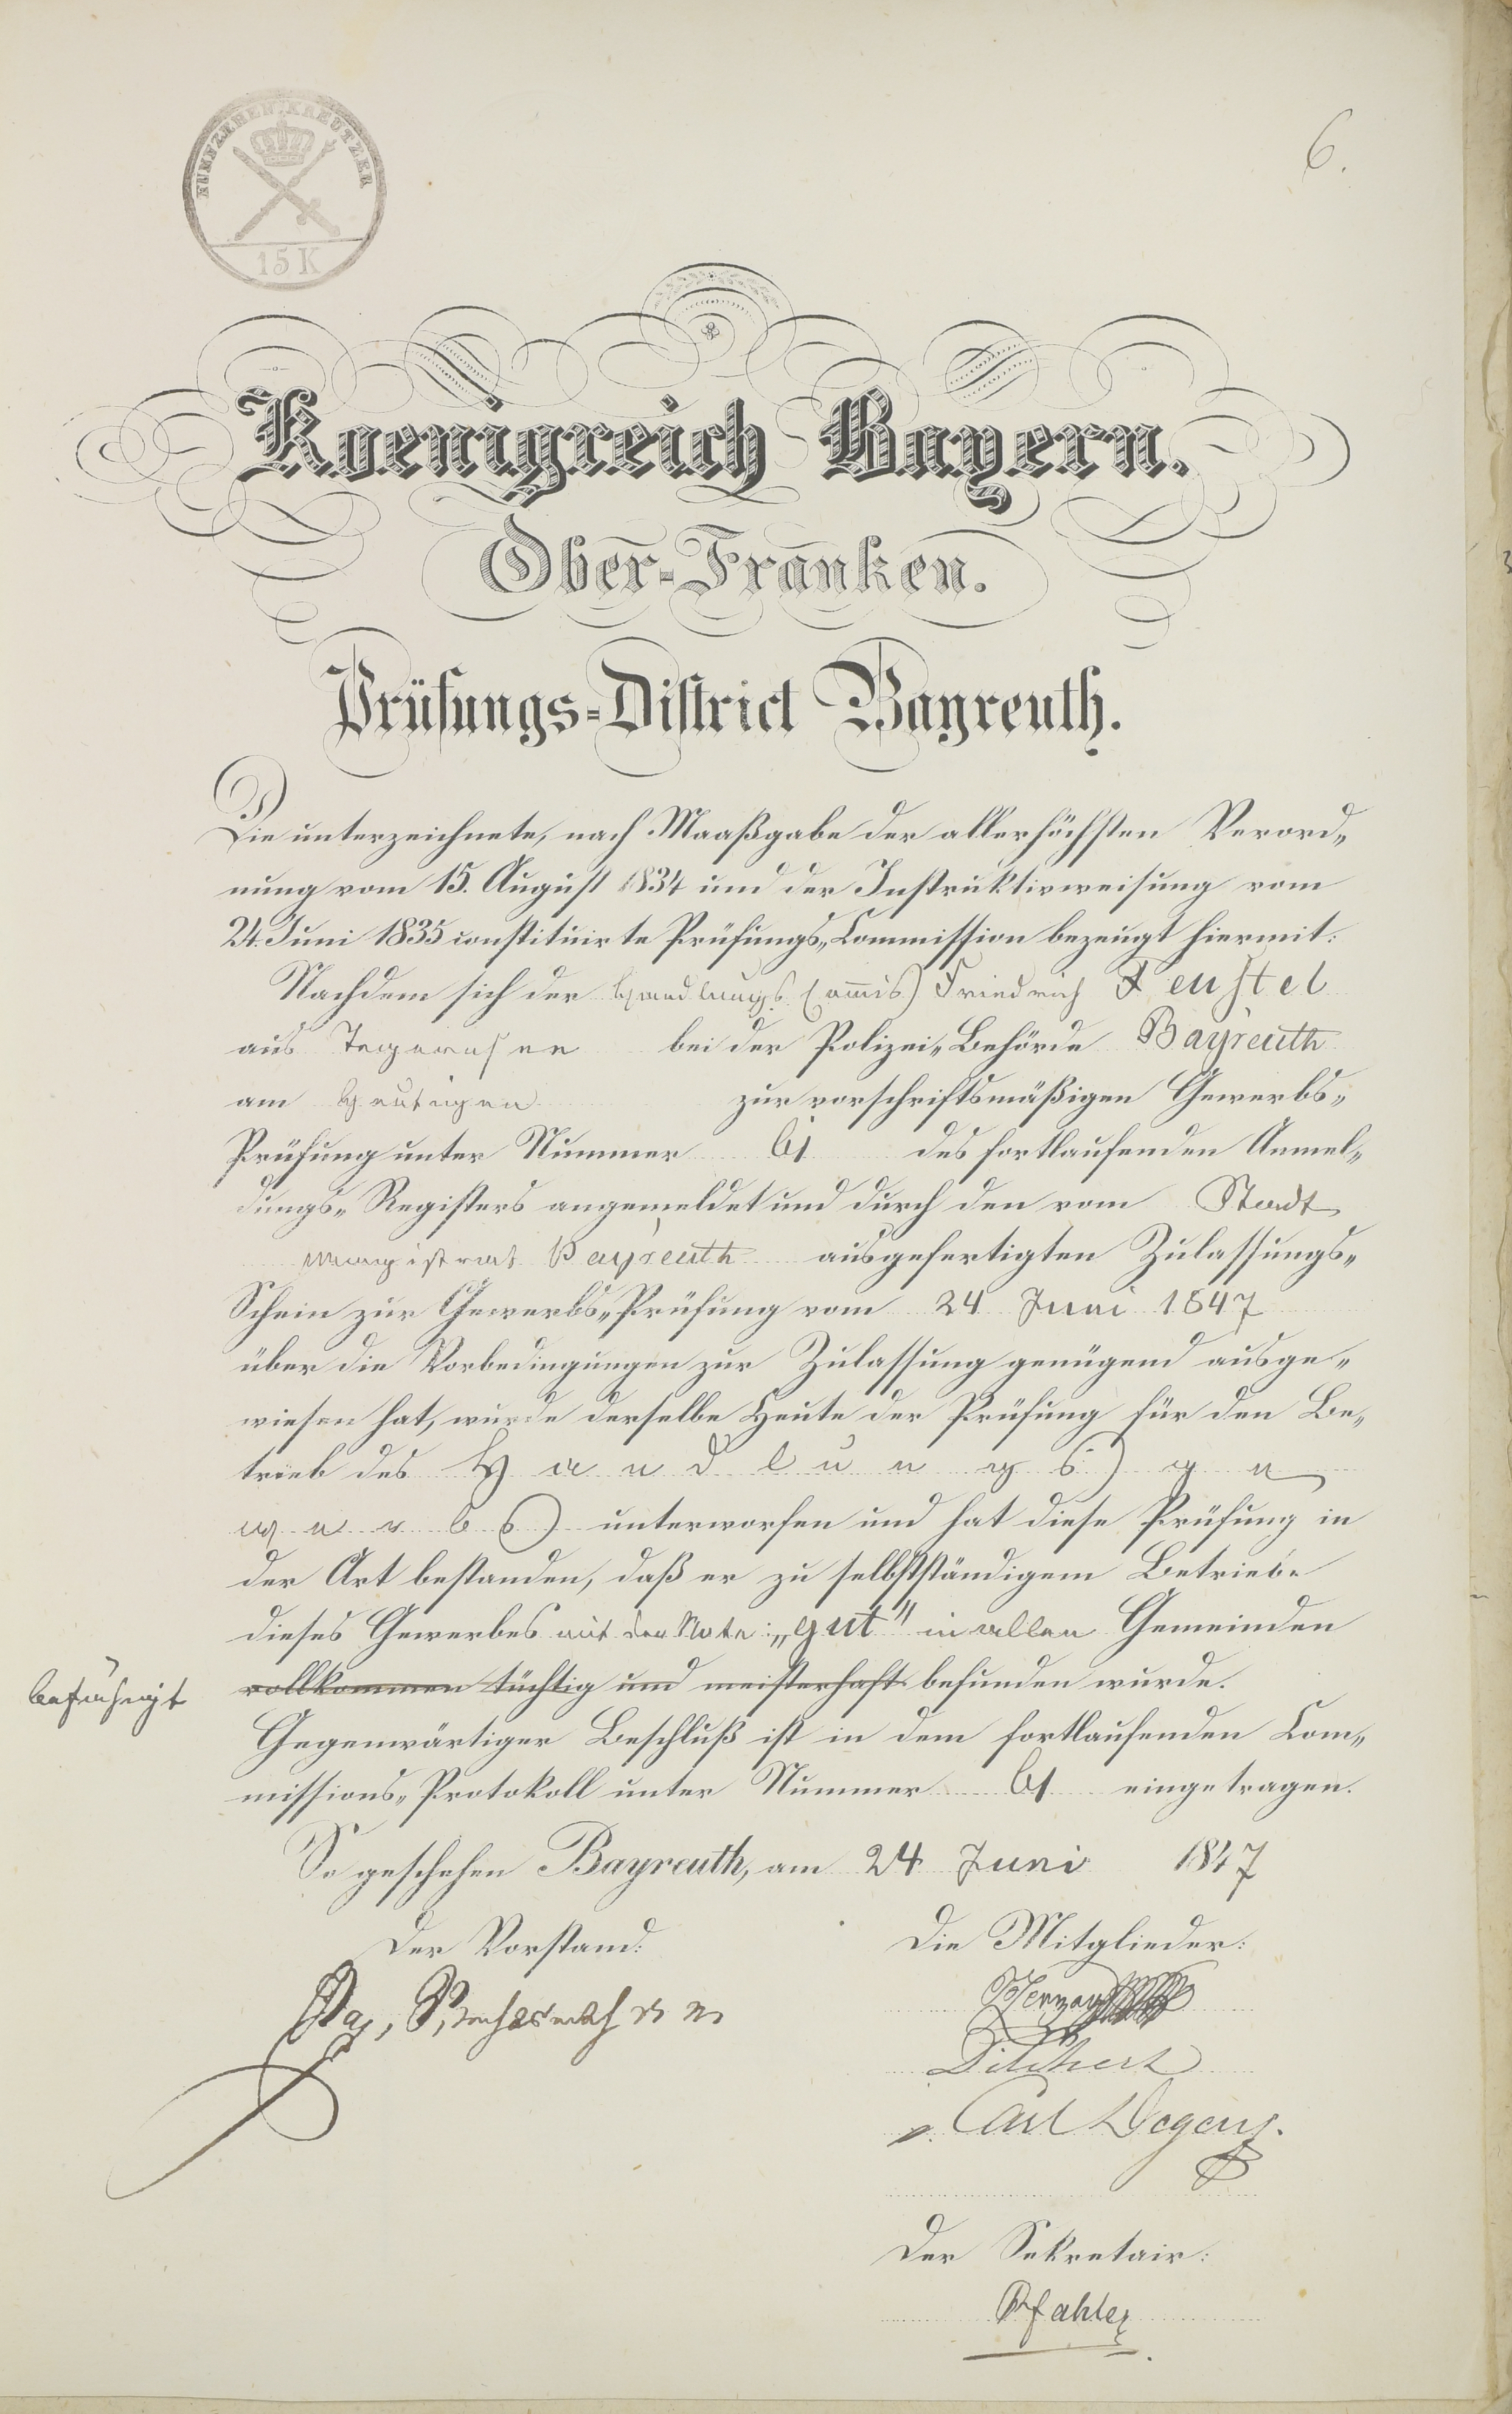 FUNFZEHEN KREUTZER
15 K
6.
Koenigreich Bayern.
Ober-Franken.
Prüfungs-District Bayreuth.
Die unterzeichnete, nach Maaßgabe der allerhöchsten Verord„
nung vom 15. August 1834 und der Instruktivweisung vom
24. Juni 1835 constituirte Prüfungs„Commission bezeugt hiermit:
Nachdem sich der Handlungs Commis Friedrich Feustel
aus Tegernsee bei der Polizei„Behörde Bayreuth
am Heutigen zur vorschriftsmäßigen Gewerbs„
Prüfung unter Nummer 61 des fortlaufenden Anmel„
dungs„Registers angemeldet und durch den vom Stadt
magistrat Bayreuth ausgefertigten Zulassungs„
Schein zur Gewerbs„Prüfung vom 24 Juni 1847
über die Vorbedingungen zur Zulassung genügend ausge„
wiesen hat, wurde derselbe Heute der Prüfung für den Be„
trieb des Handlungs ge
werbs unterworfen und hat diese Prüfung in
der Art bestanden, daß er zu selbstständigem Betriebe
dieses Gewerbes mit der Note: „gut" in allen Gemeinden
befähigt vollkommen tüchtig und meisterhaft befunden wurde.
Gegenwärtiger Beschluß ist in dem fortlaufenden Com„
missions„Protokoll unter Nummer 61 eingetragen.
So geschehen Bayreuth, am 24 Juni 1847
Der Vorstand:
Die Mitglieder:
Carl Degen
Der Sekretair:
Pfahler